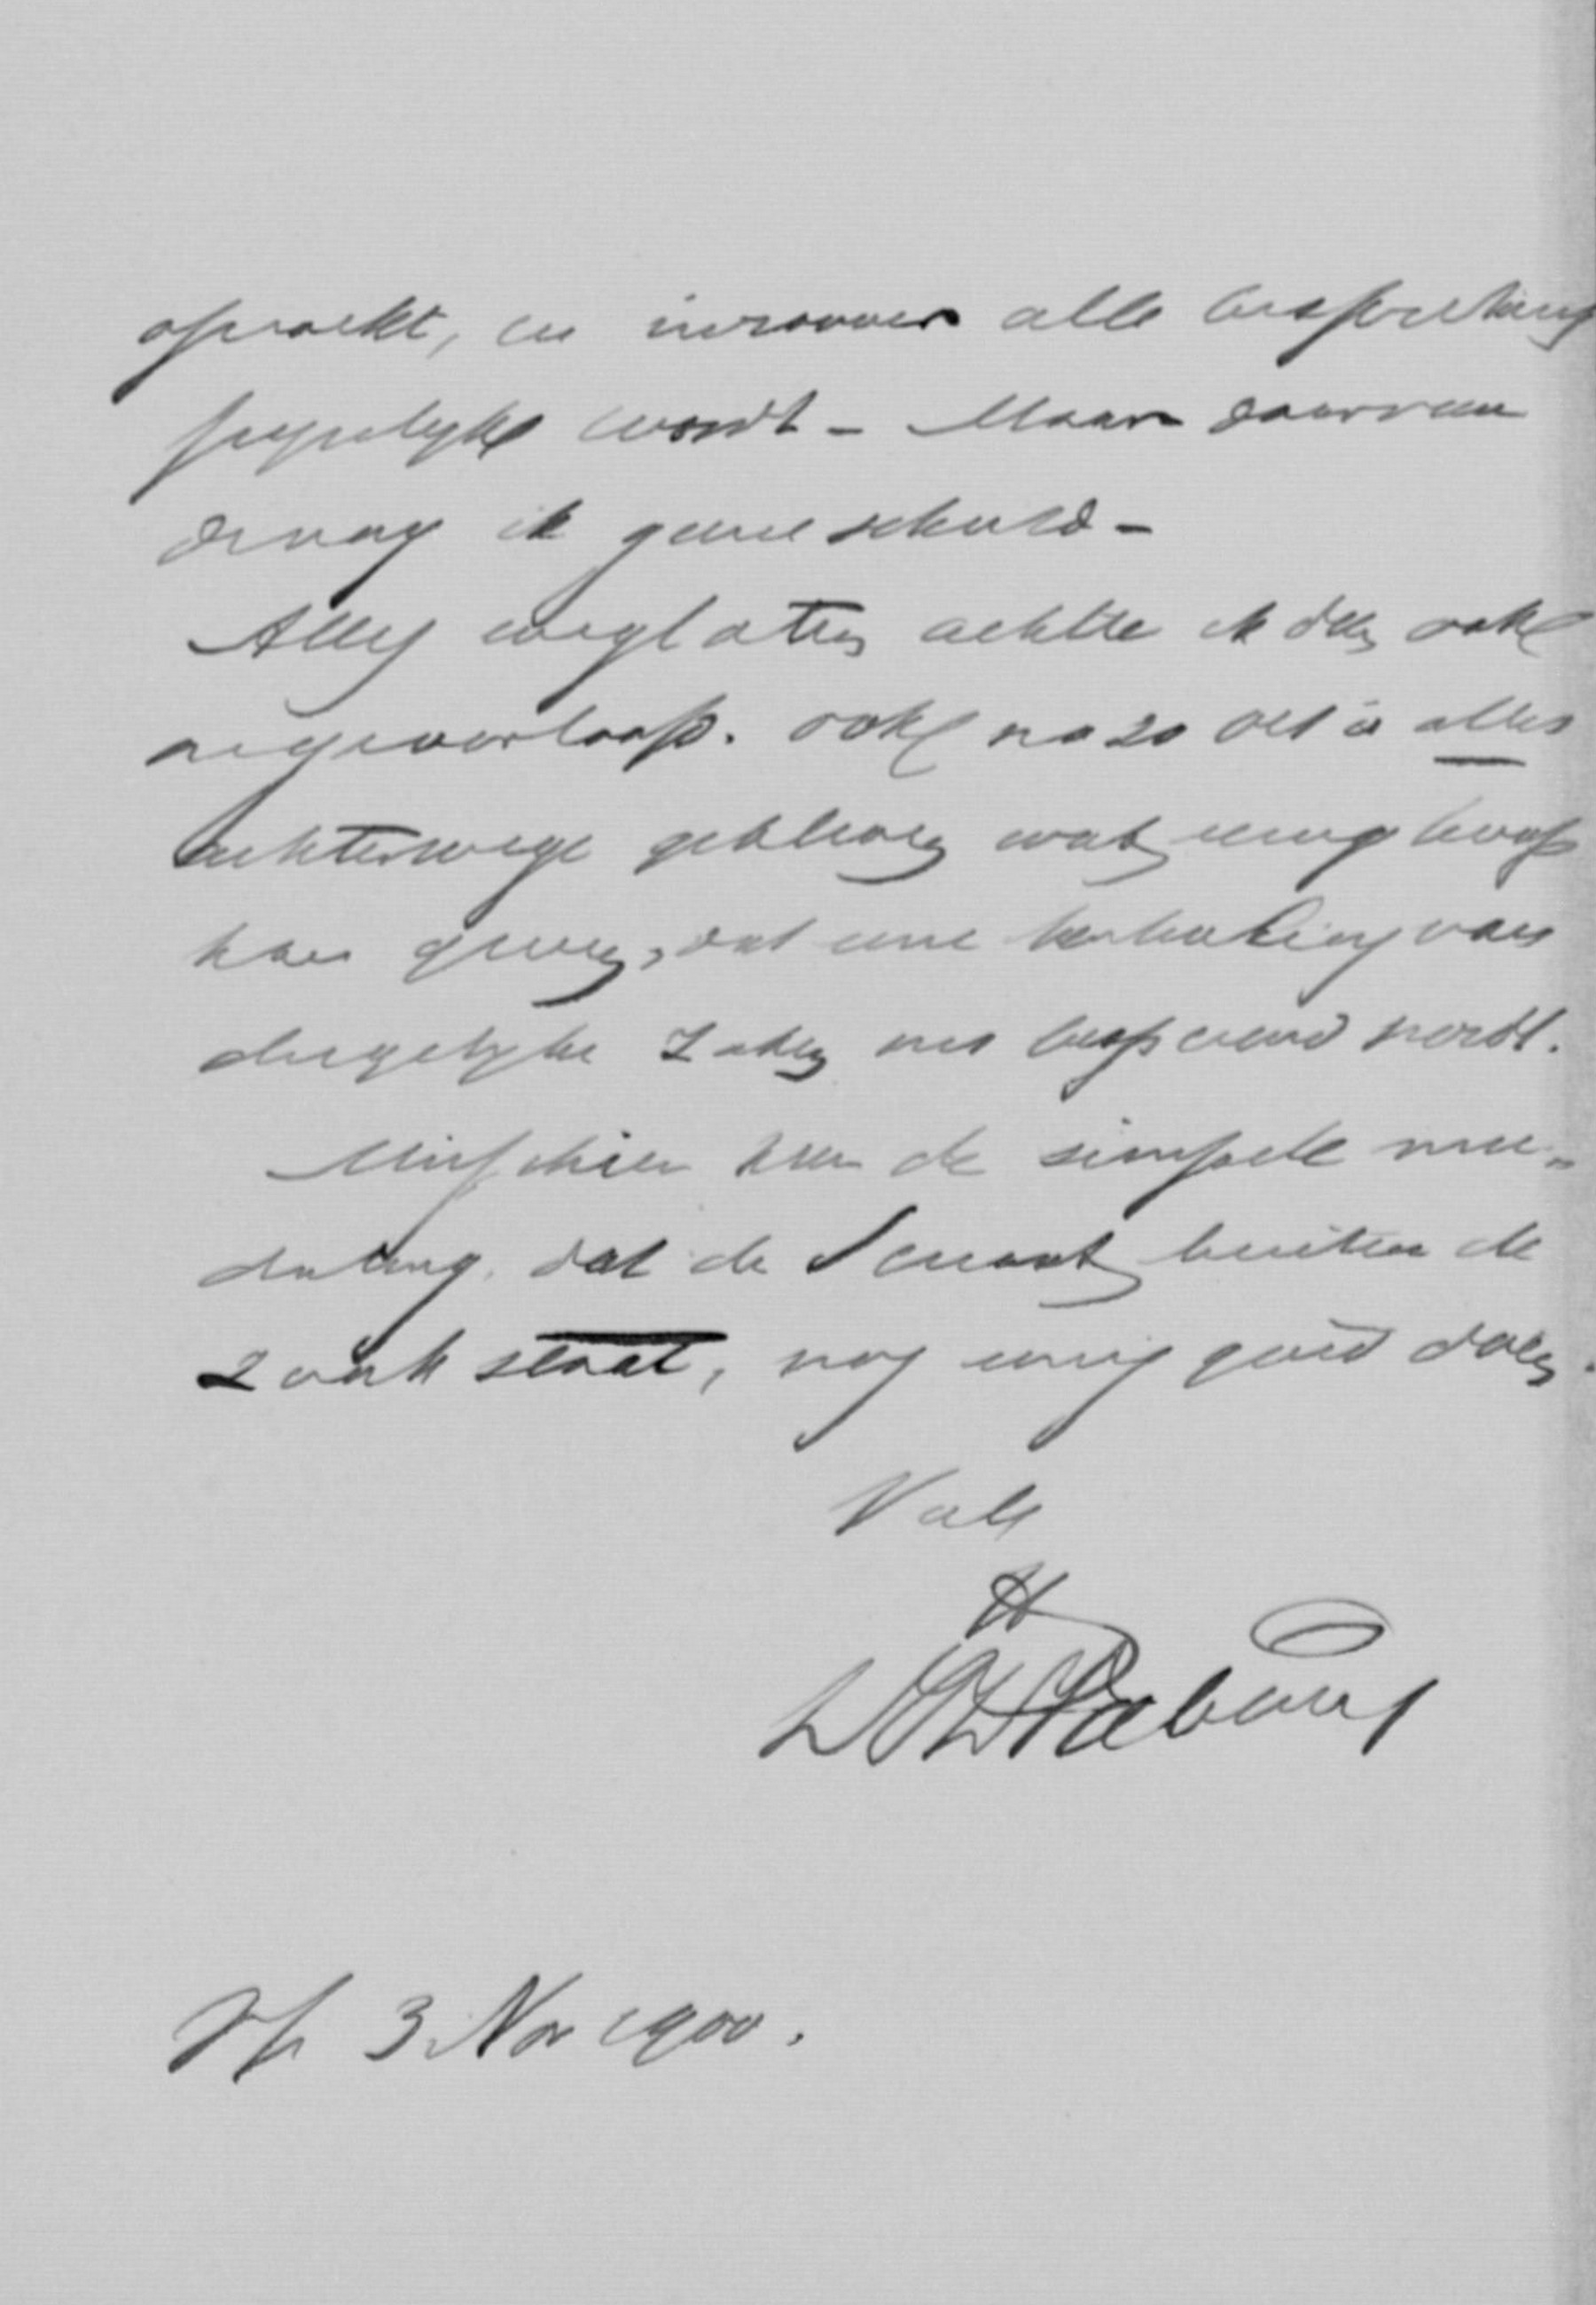 opwekt, en inzoover alle bespreking
pijnlijke wordt - Maar daarvan
draag ik geene schuld -
Alles weglaten achtte ik dus ook
ongeoorloofd. Ook na 20 Oct is alles
achterwege gebleven wat eenige hoop
kan geven, dat eene herhaling van
dergelijke zaken ons bespaard wordt.
Misschien kan de simpele mee-
deling, dat de Senaat buiten de
zaak staat, nog eenig goed doen.
Vale
Rabbertus
3 Nov 1900.